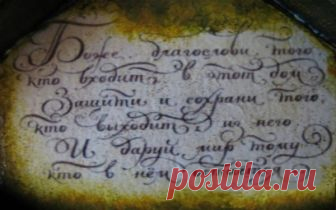 Боже благослови того
кто входит в этот дом
Защити и сохрани того
кто выходит из него
И даруй мир тому
кто в нём
postila.ru